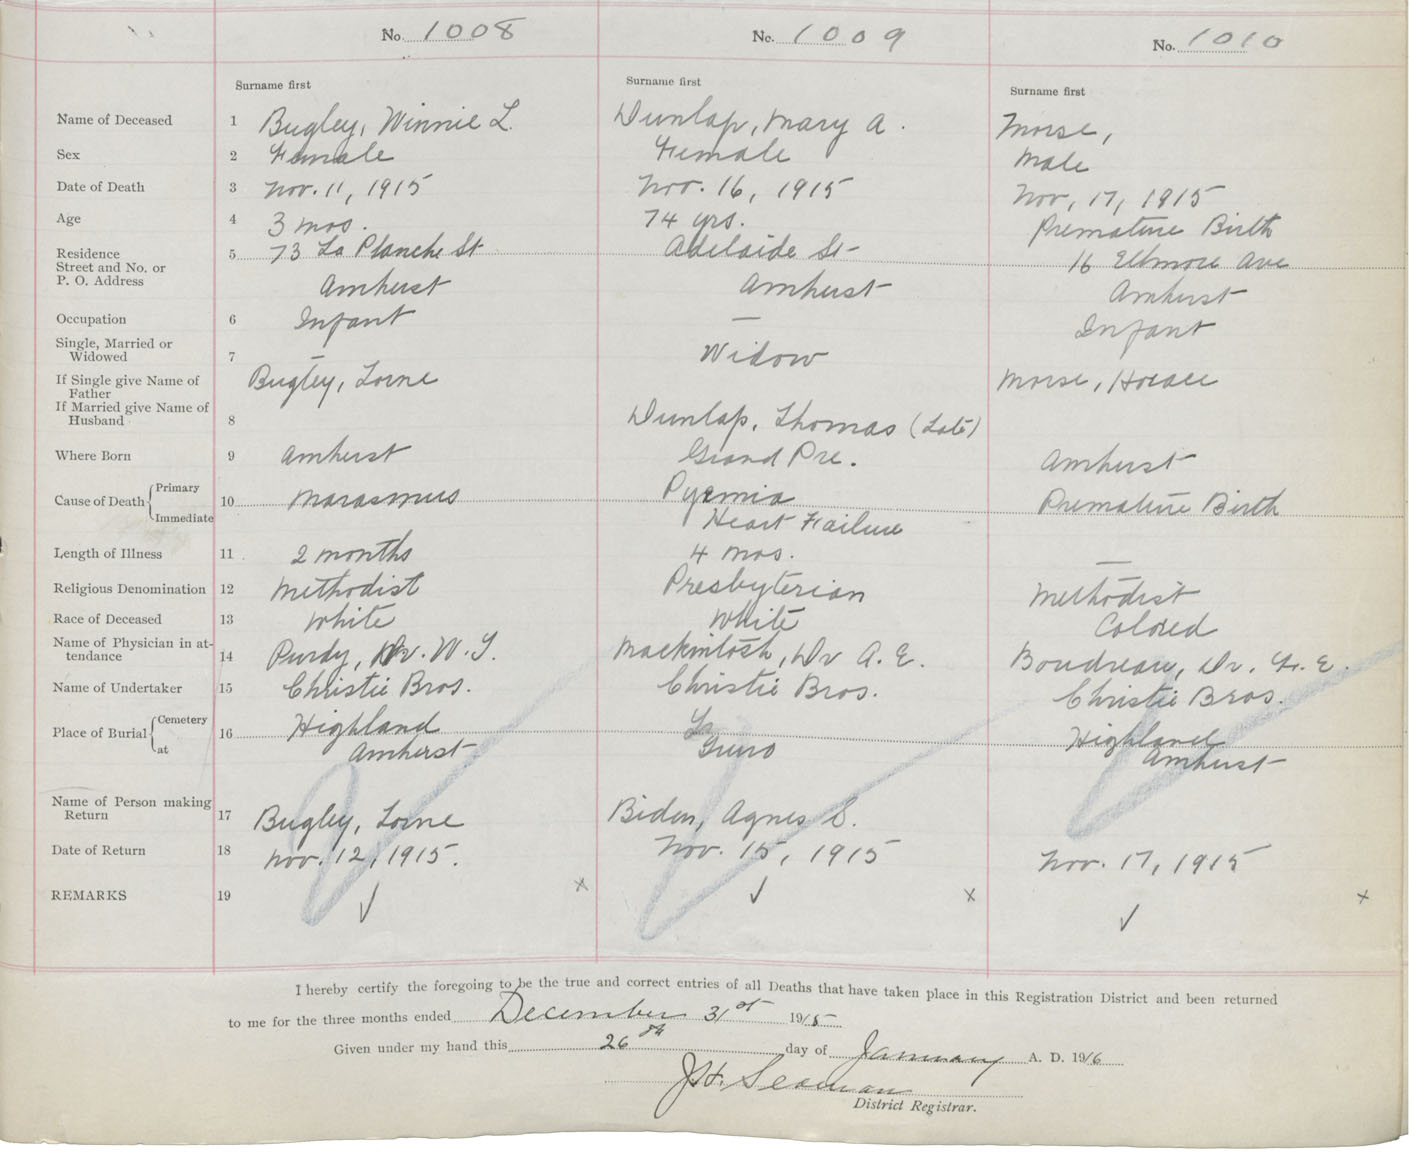 No. 1008 No. 1009 No. 1010
Surname first Surname first Surname first
Name of Deceased 1 Bugley, Winnie L. Dunlap, Mary A. Morse,
Sex 2 Female Female Male
Date of Death 3 Nov. 11, 1915 Nov. 16, 1915 Nov. 17, 1915
Age 4 3 mos. 74 yrs. Premature Birth
Residence 5 73 La Planche St Adelaide St 16 Ellmore Ave
Street and No. or
P. O. Address Amherst Amherst Amherst
Occupation 6 Infant — Infant
Single, Married or
Widowed 7 — Widow
If Single give Name of Bugley, Lorne Morse, Horace
Father
If Married give Name of
Husband 8 Dunlap, Thomas (Late)
Where Born 9 Amherst Grand Pre. Amherst
Cause of Death Primary 10 Marasmus Pyemia Premature Birth
Immediate Heart Failure
Length of Illness 11 2 months 4 mos. —
Religious Denomination 12 Methodist Presbyterian Methodist
Race of Deceased 13 White White Colored
Name of Physician in at-
tendance 14 Purdy, Dr. W. T. Mackintosh, Dr A. E. Boudreau, Dr. F. E.
Name of Undertaker 15 Christie Bros. Christie Bros. Christie Bros.
Place of Burial Cemetery 16 Highland Highland
at Amherst Truro Amherst
Name of Person making
Return 17 Bugley, Lorne Biden, Agnes S.
Date of Return 18 Nov. 12, 1915. Nov. 15, 1915 Nov. 17, 1915
REMARKS 19 ✓ x ✓ x ✓ x
I hereby certify the foregoing to be the true and correct entries of all Deaths that have taken place in this Registration District and been returned
to me for the three months ended December 31st 1915
Given under my hand this 26th day of January A. D. 1916
J.H. Seaman
District Registrar.